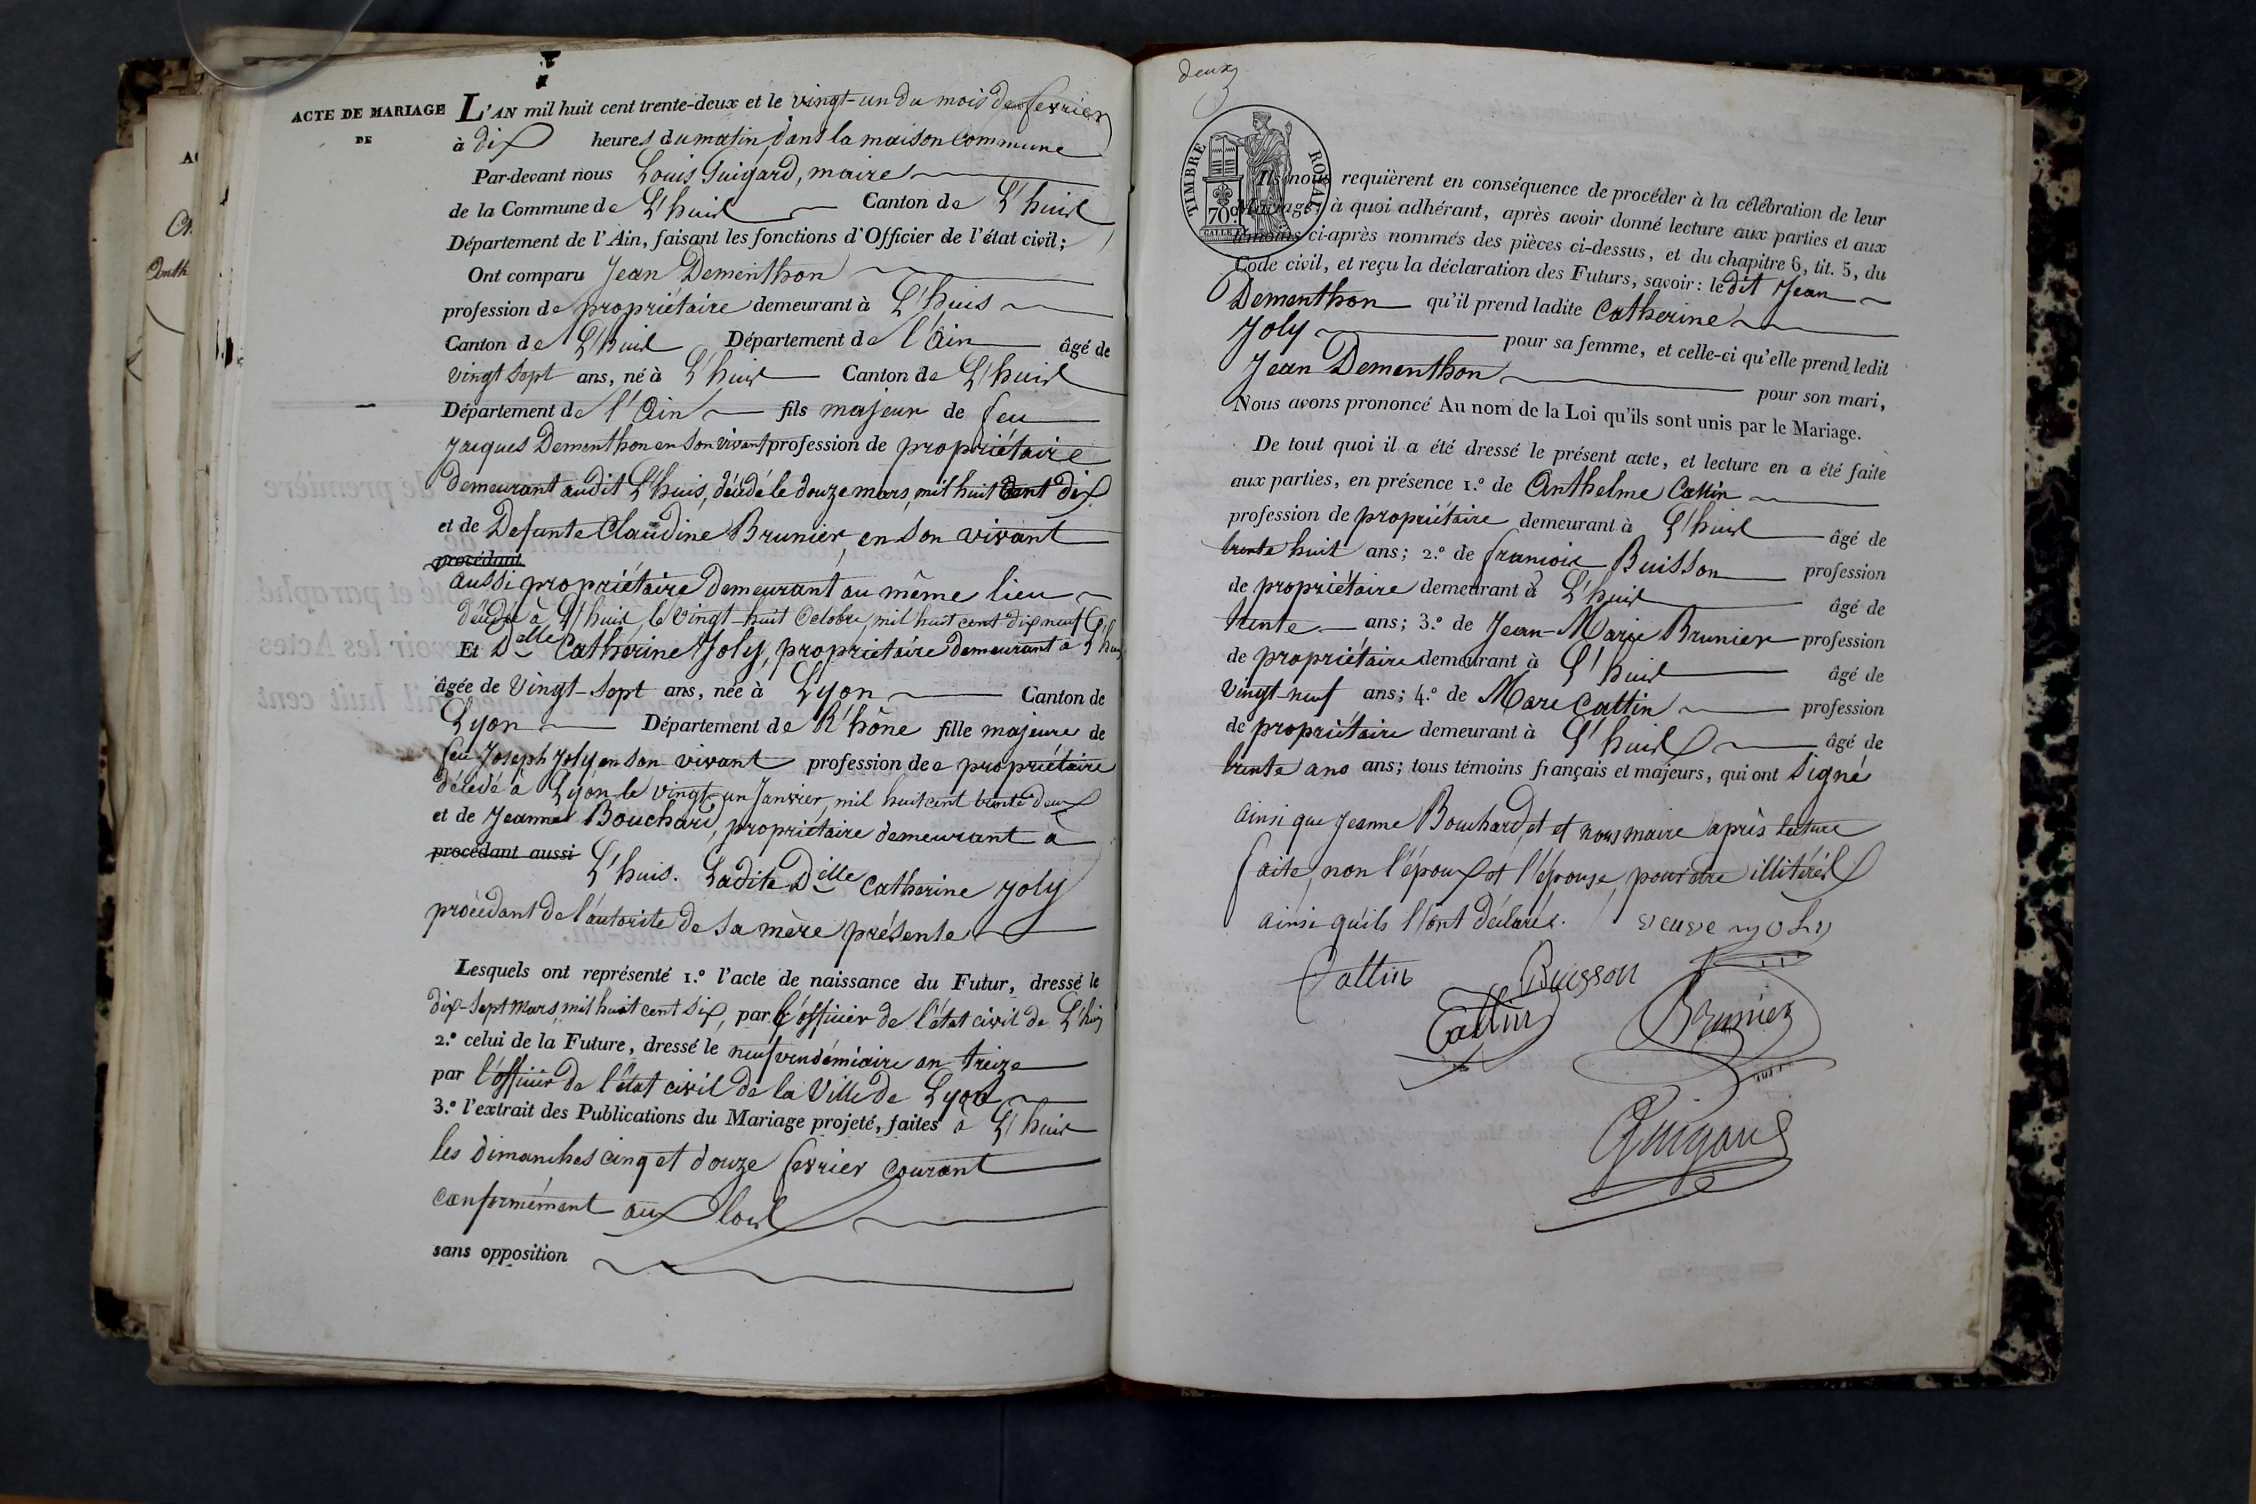 ACTE DE MARIAGE
DE
L'AN mil huit cent trente-deux et le vingt-un du mois de fevrier
à dix heures du matin dans la maison commune
Par-devant nous Louis Guigard, maire
de la Commune de L'huis Canton de L'huis
Département de l'Ain, faisant les fonctions d'Officier de l'état civil;
Ont comparu Jean Dementhon
profession de propriétaire demeurant à L'huis
Canton de L'huis Département de l'Ain âgé de
vingt sept ans, né à L'huis Canton de L'huis
Département de l'Ain fils majeur de feu
Jacques Dementhon en son vivant profession de propriétaire
demeurant audit L'huis, décédé le douze mars, mil huit cent dix
et de Defunte Claudine Brunier, en son vivant
procédant
aussi propriétaire demeurant au même lieu
décédée à L'huis, le vingt-huit Octobre, mil huit cent dix neuf
Et Delle Catherine Joly, propriétaire demeurant à L'huis
âgée de vingt-sept ans, née à Lyon Canton de
Lyon Département de R'hône fille majeure de
feu Joseph Joly en son vivant profession de propriétaire
décédé à Lyon le vingt-un Janvier, mil huit cent trente deux
et de Jeanne Bouchard, propriétaire demeurant à
procédant aussi L'huis. Ladite Delle Catherine Joly
procédant de l'autorité de sa mère présente
Lesquels ont représenté 1.º l'acte de naissance du Futur, dressé le
dix-sept mars, mil huit cent six, par l'officier de l'état civil de L'huis
2.º celui de la Future, dressé le neuf vendémiaire an treize
par l'officier de l'état civil de la Ville de Lyon
3.º l'extrait des Publications du Mariage projeté, faites à L'huis
les dimanches cinq et douze fevrier courant
conformément aux lois
sans opposition
deux
TIMBRE ROYAL
70
Ils nous requièrent en conséquence de procéder à la célébration de leur
Mariage; à quoi adhérant, après avoir donné lecture aux parties et aux
témoins ci-après nommés des pièces ci-dessus, et du chapitre 6, tit. 5, du
Code civil, et reçu la déclaration des Futurs, savoir: le dit Jean
Dementhon qu'il prend ladite Catherine
Joly pour sa femme, et celle-ci qu'elle prend ledit
Jean Dementhon pour son mari,
Nous avons prononcé Au nom de la Loi qu'ils sont unis par le Mariage.
De tout quoi il a été dressé le présent acte, et lecture en a été faite
aux parties, en présence 1.º de Anthelme Cattin
profession de propriétaire demeurant à L'huis âgé de
trente huit ans; 2.º de francois Buisson profession
de propriétaire demeurant à L'huis âgé de
trente ans; 3.º de Jean-Marie Brunier profession
de propriétaire demeurant à L'huis âgé de
vingt-neuf ans; 4.º de Marc Cattin profession
de propriétaire demeurant à L'huis âgé de
trente ans ans; tous témoins français et majeurs, qui ont signé
ainsi que Jeanne Bouchard, et et nous maire après lecture
faite, non l'époux et l'épouse, pour être illitérés
ainsi qu'ils l'ont déclarés. veuve Joly
Cattin Buisson
Cattin Brunier
Guigard